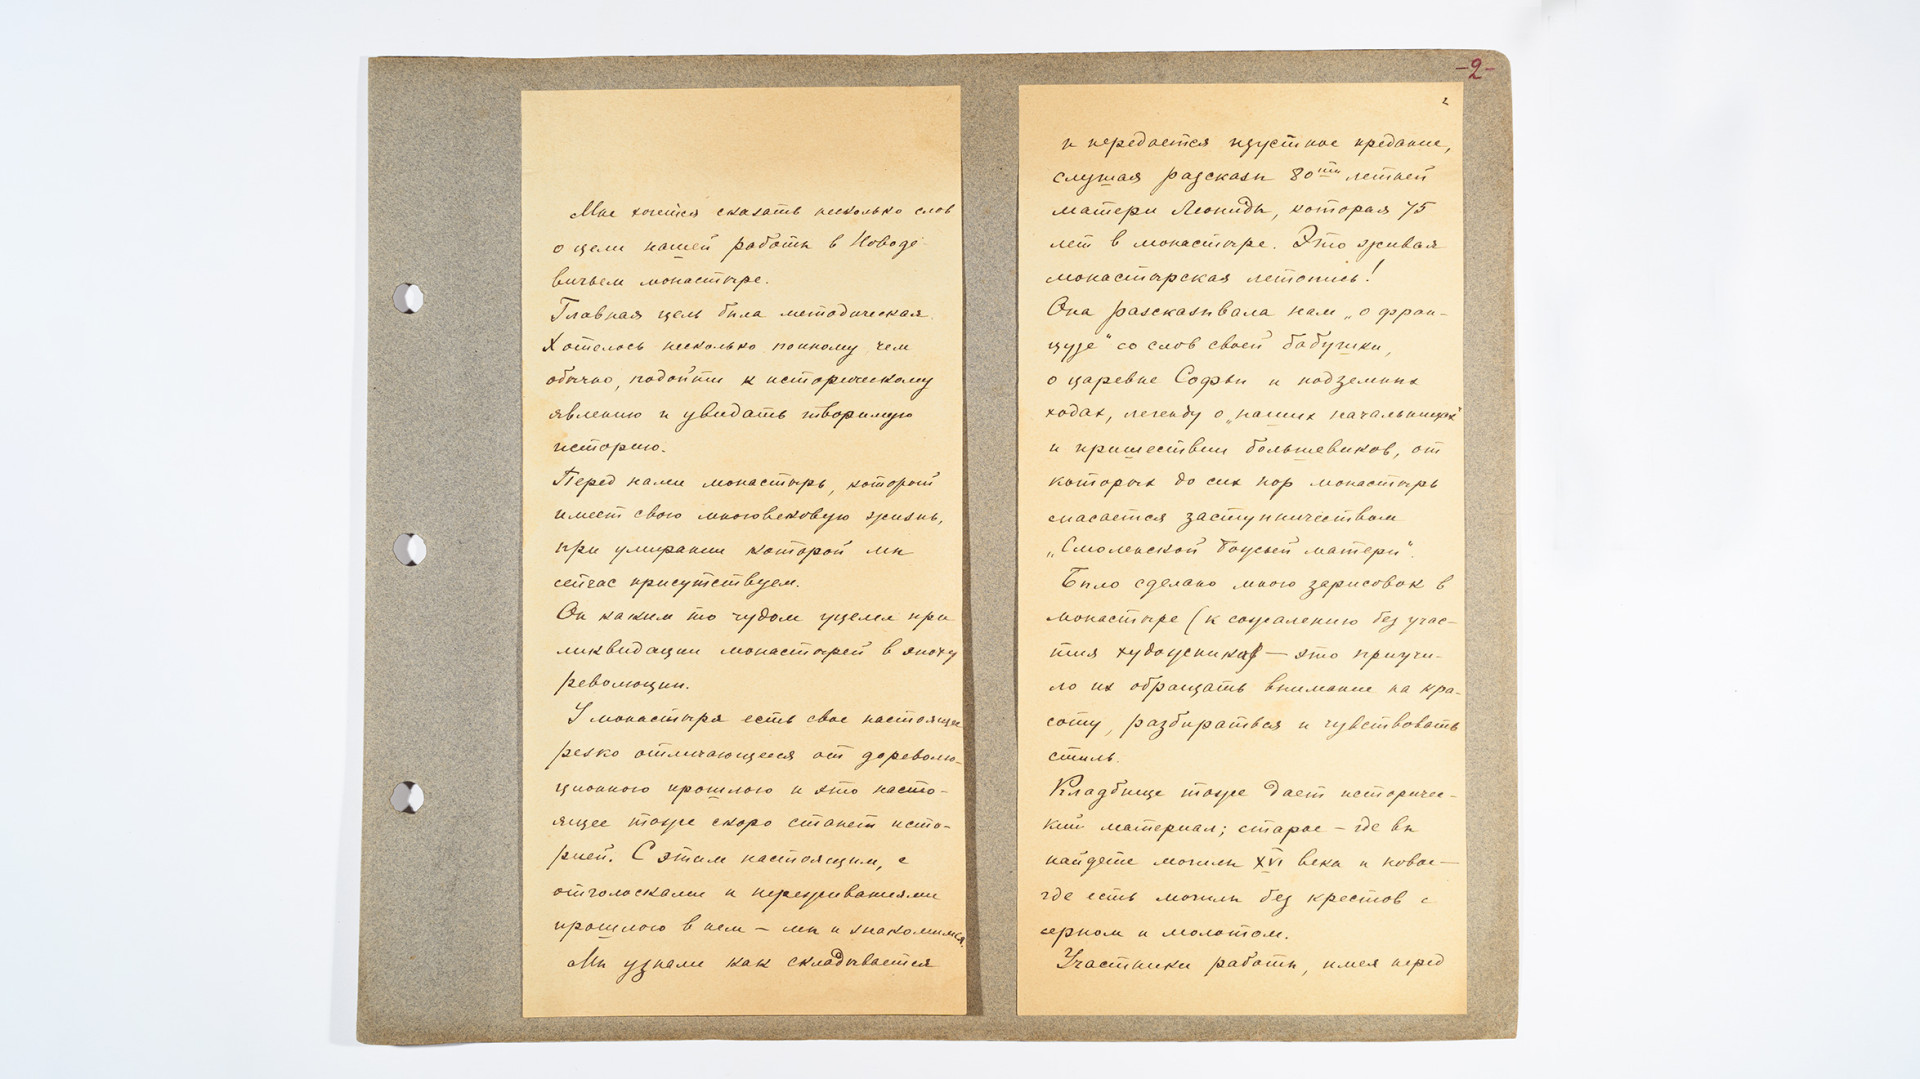 Мне хочется сказать несколько слов
о цели нашей работы в Новоде-
вичьем монастыре.
Главная цель была методическая.
Хотелось несколько поиному чем
обычно, подойти к историческому
явлению и увидать творимую
историю.
Перед нами монастырь, который
имеет свою многовековую жизнь,
при умирании которой мы
сейчас присутствуем.
Он каким то чудом уцелел при
ликвидации монастырей в эпоху
революции.
У монастыря есть свое настоящее
резко отличающееся от дореволю-
ционного прошлого и это насто-
ящее тоже скоро станет исто-
рией. С этим настоящим, с
отголосками и переживаниями
прошлого в нем – мы и знакомимся.
Мы узнали как складывается
-2-
2
и передается изустное предание,
слушая рассказы 80ти летней
матери Леониды, которая 75
лет в монастыре. Это живая
монастырская летопись!
Она рассказывала нам „о фран-
цузе" со слов своей бабушки,
о царевне Софьи и подземных
ходах, легенду о „наших начальницах"
и пришествии большевиков, от
которых до сих пор монастырь
спасается заступничеством
„Смоленской божьей матери".
Было сделано много зарисовок в
монастыре (к сожалению без учас-
тия художника) – это приучи-
ло их обращать внимание на кра-
соту, разбираться и чувствовать
стиль.
Кладбище тоже дает историчес-
кий материал; старое – где вы
найдете могилы XVI века и новое –
где есть могилы без крестов с
серпом и молотом.
Участники работы, имея перед